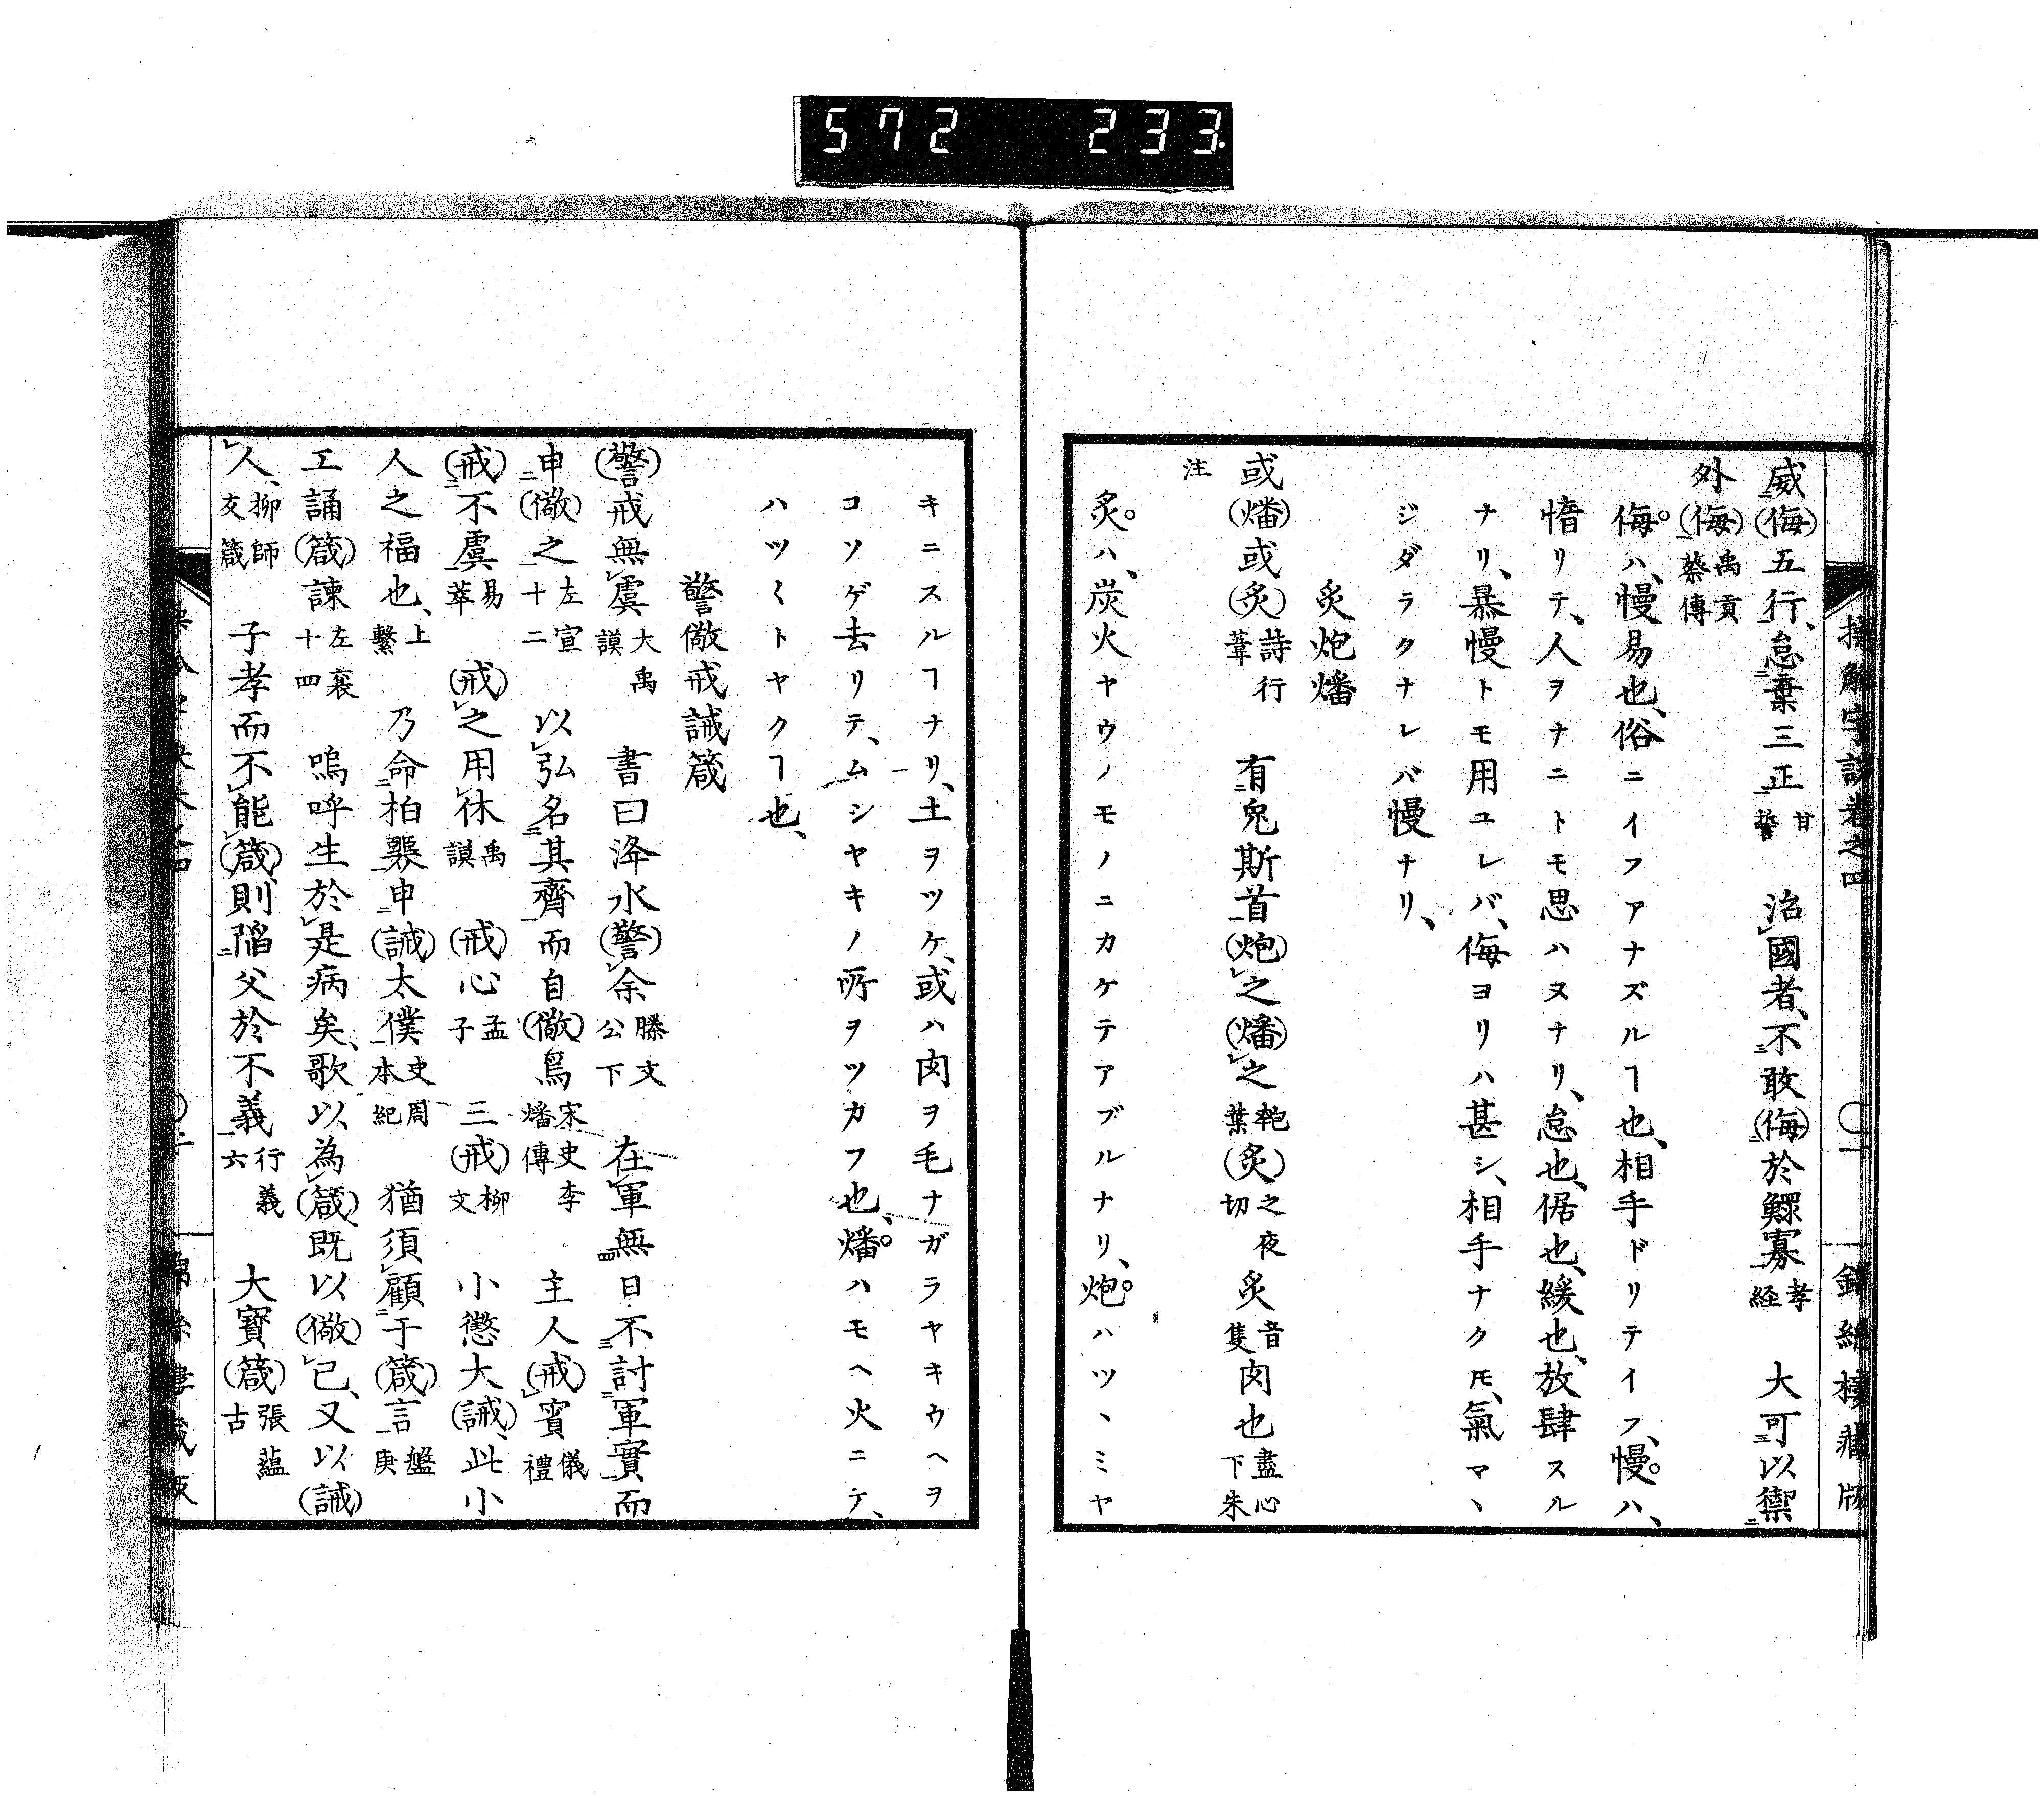 572 233
威(侮)五行、怠棄三正甘誓 治國者、不敢(侮)於鰥寡孝経 大可以禦
外(侮)禹貢蔡傳
侮。ハ、慢易也、俗ニイフアナズルヿ也、相手ドリテイフ、慢。ハ、
惰リテ、人ヲナニトモ思ハヌナリ、怠也、倨也、緩也、放肆スル
ナリ、暴慢トモ用ユレバ、侮ヨリハ甚シ、相手ナク𪜈、氣マヽ
ジダラクナレバ慢ナリ、
炙炮燔
或(燔)或(炙)詩行葦 有兔斯首(炮)之(燔)之瓠葉(炙)之夜切 炙音隻肉也盡心下朱
注
炙。ハ、炭火ヤウノモノニカケテアブルナリ、炮。ハツヽミヤ
キニスルヿナリ、土ヲツケ、或ハ肉ヲ毛ナガラヤキウヘヲ
コソゲ去リテ、ムシヤキノ所ヲツカフ也、燔。ハモヘ火ニテ、
ハツ〱トヤクヿ也、
警儆戒誡箴
(警)戒無虞大禹謨 書曰洚水(警)余滕文公下 在軍無日不討軍實而
申(儆)之左宣十二 以弘名其齊而自(儆)焉宋史李燔傳 主人(戒)賓儀禮
(戒)不虞易萃 (戒)之用休禹謨 (戒)心孟子 三(戒)柳文 小懲大(誡)、此小
人之福也、上繫 乃命柏褧申(誡)太僕史周本紀 猶須顧于(箴)言盤庚
工誦(箴)諫左襄十四 嗚呼生於是病矣、歌以為(箴)、既以(儆)已、又以(誡)
人、柳師友箴 子孝而不能(箴)、則陷父於不義行義六 大寶(箴)張蘊古